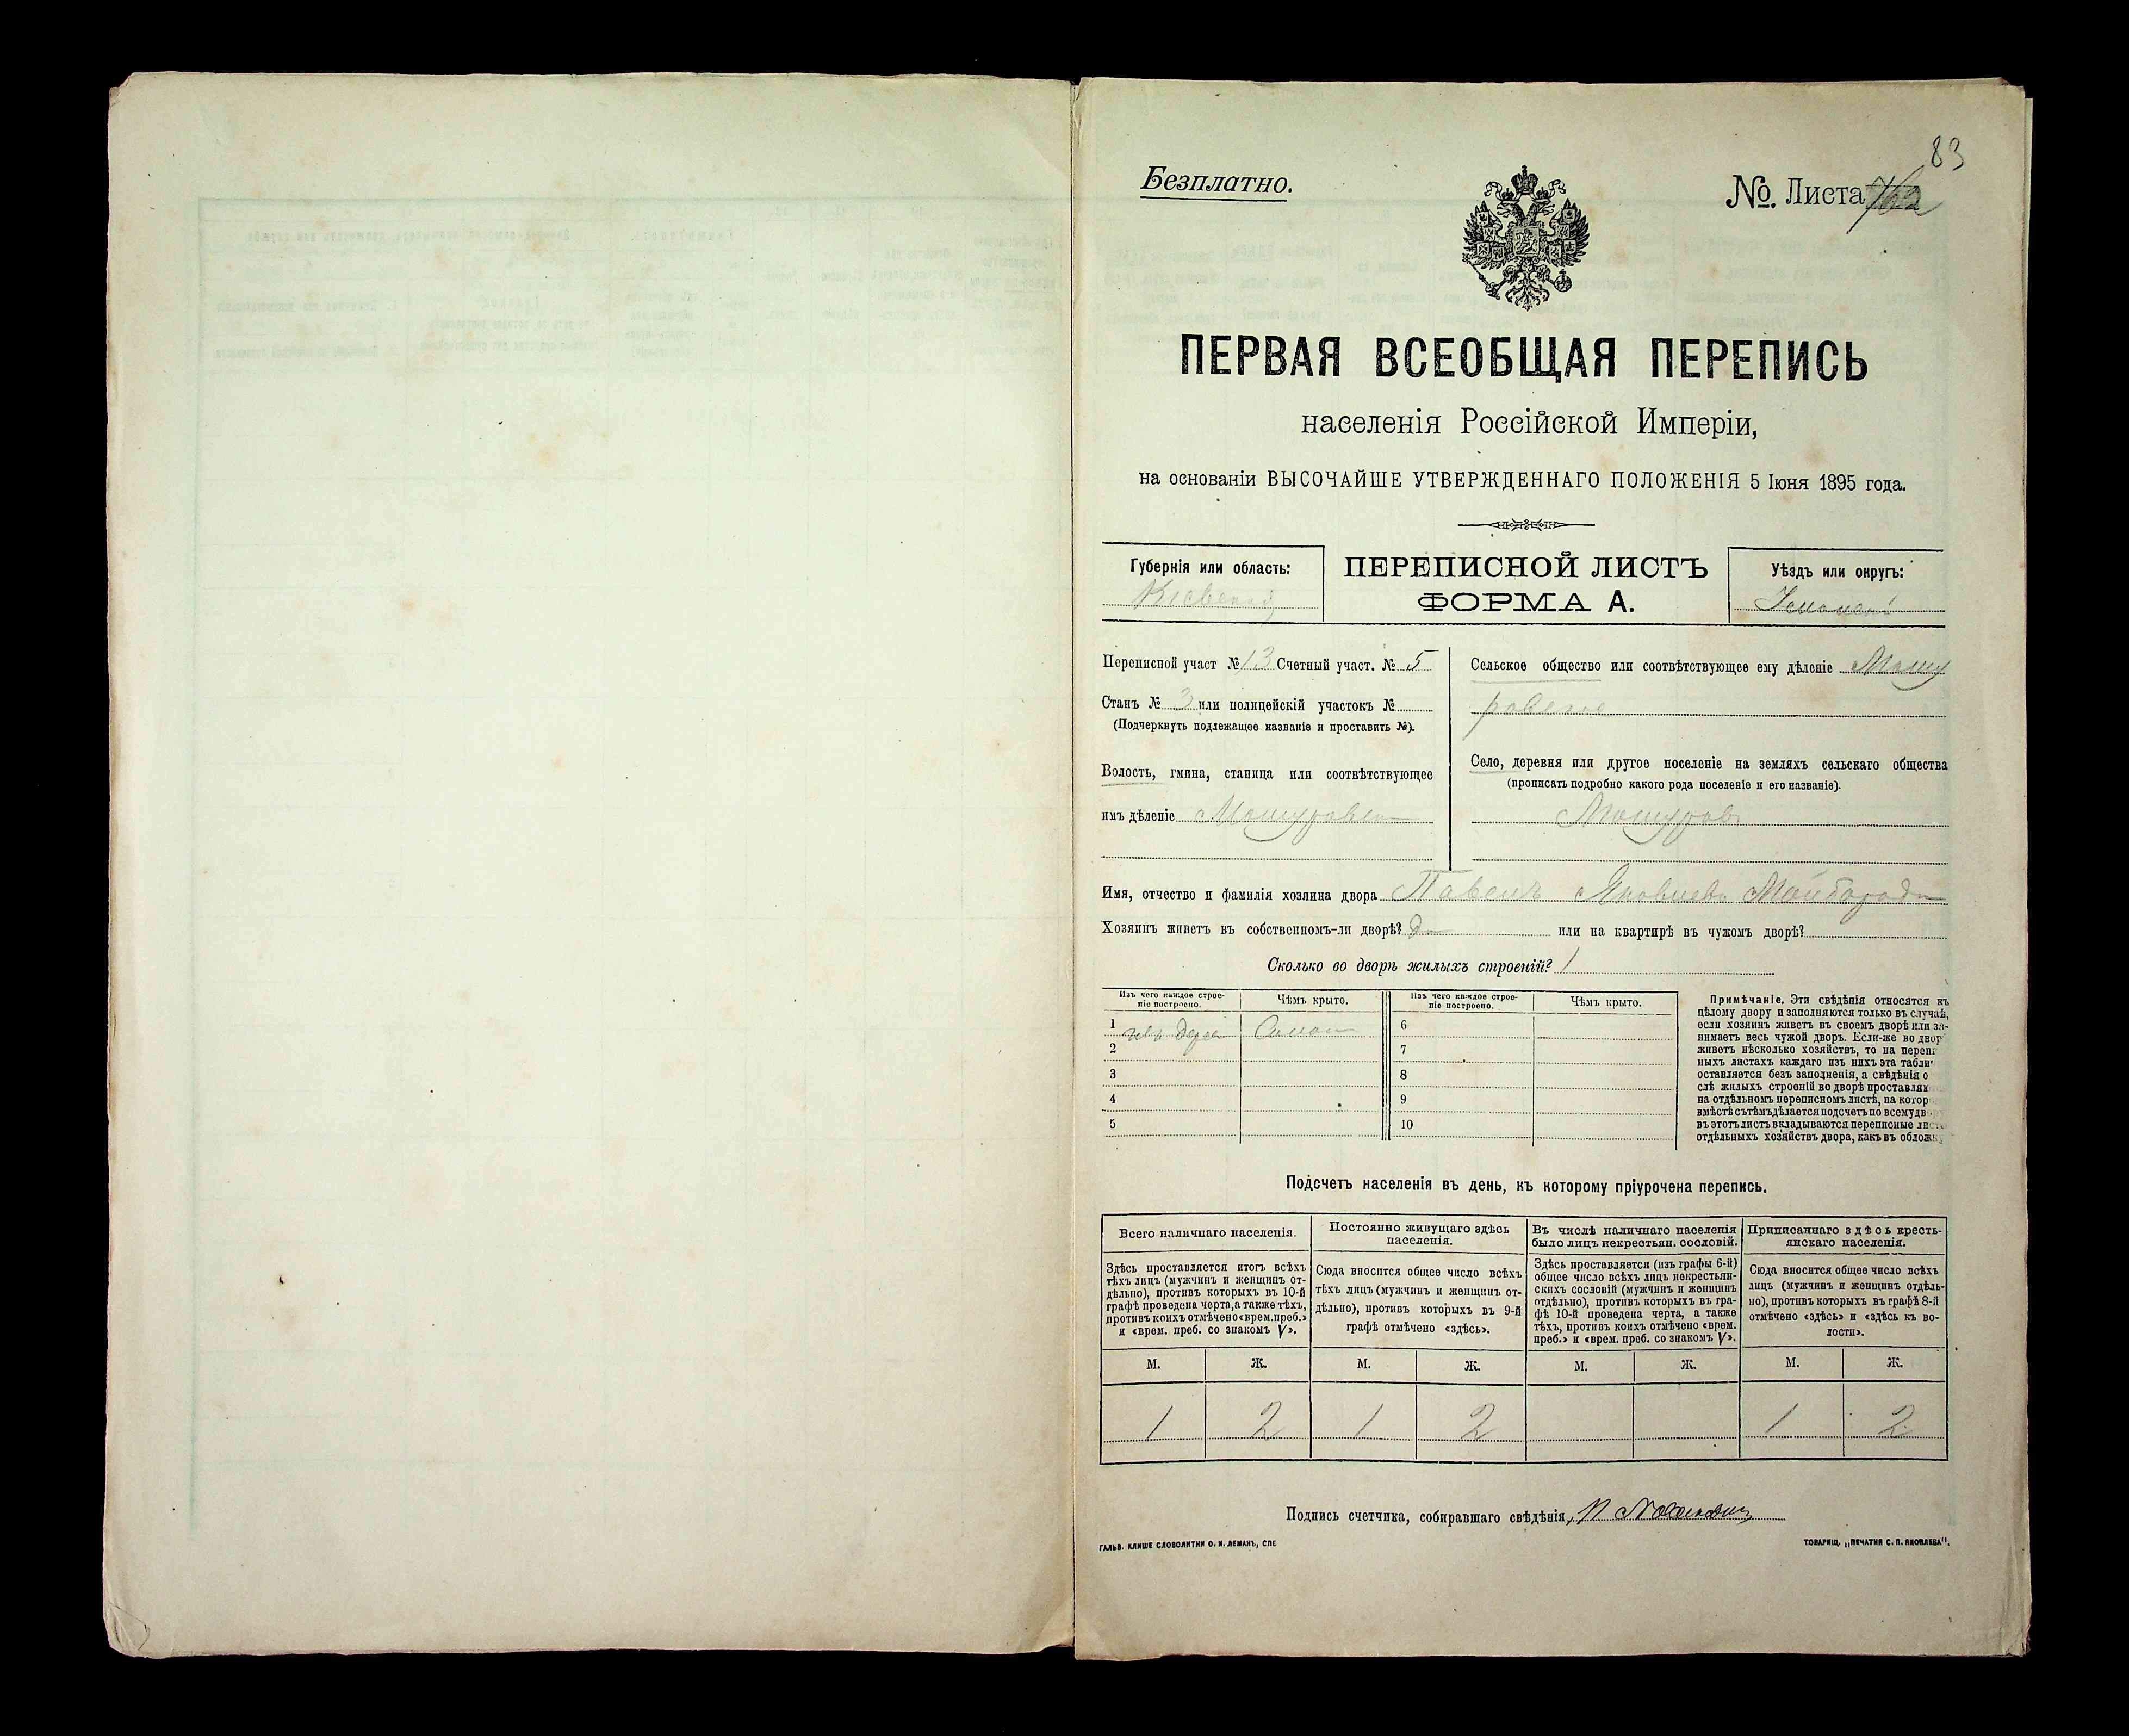 83
Безплатно.
№. Листа
ПЕРВАЯ ВСЕОБЩАЯ ПЕРЕПИСЬ
населенія Россійской Имперіи,
на основаніи ВЫСОЧАЙШЕ УТВЕРЖДЕННАГО ПОЛОЖЕНІЯ 5 Іюня 1895 года.
Губернія или область:
Кіевской
ПЕРЕПИСНОЙ ЛИСТЪ
ФОРМА А.
Уѣздъ или округъ:
Переписной участ № 13 Счетный участ. № 5
Станъ № 3 или полицейскій участокъ №
(Подчеркнуть подлежащее названіе и проставить №).
Волость, гмина, станица или соотвѣтствующее
имъ дѣленіе
Сельское общество или соотвѣтствующее ему дѣленіе Машу
ровское
Село, деревня или другое поселеніе на земляхъ сельскаго общества
(прописать подробно какого рода поселеніе и его названіе).
Машуров
Имя, отчество и фамилія хозяина двора Павелъ Яковлевъ Майборода
Хозяинъ живетъ въ собственномъ-ли дворѣ? да или на квартирѣ въ чужомъ дворѣ?
Сколько во дворѣ жилыхъ строеній? 1
Изъ чего каждое строе-
ніе построено.
Чѣмъ крыто.
Изъ чего каждое строе-
ніе построено.
Чѣмъ крыто.
1 изъ дерев Солом
2
3
4
5
6
7
8
9
10
Примѣчаніе. Эти свѣдѣнія относятся къ
цѣлому двору и заполняются только въ случаѣ,
если хозяинъ живетъ въ своемъ дворѣ или за-
нимаетъ весь чужой дворъ. Если-же во двор
живетъ нѣсколько хозяйствъ, то на переп
ныхъ листахъ каждаго изъ нихъ эта табли
оставляется безъ заполненія, а свѣдѣнія о
слѣ жилыхъ строеній во дворѣ проставляю
на отдѣльномъ переписномъ листѣ, на котор
вмѣстѣ съ тѣмъ дѣлается подсчетъ по всему дв
въ этотъ листъ вкладываются переписные лис
отдѣльныхъ хозяйствъ двора, какъ въ обложк
Подсчетъ населенія въ день, къ которому пріурочена перепись.
Всего наличнаго населенія.
Здѣсь проставляется итогъ всѣхъ
тѣхъ лицъ (мужчинъ и женщинъ от-
дѣльно), противъ которыхъ въ 10-й
графѣ проведена черта, а также тѣхъ,
противъ коихъ отмѣчено «врем. преб.»
и «врем. преб. со знакомъ V».
Постоянно живущаго здѣсь
населенія.
Сюда вносится общее число всѣхъ
тѣхъ лицъ (мужчинъ и женщинъ от-
дѣльно), противъ которыхъ въ 9-й
графѣ отмѣчено «здѣсь».
Въ числѣ наличнаго населенія
было лицъ некрестьян. сословій.
Здѣсь проставляется (изъ графы 6-й)
общее число всѣхъ лицъ некрестьян-
скихъ сословій (мужчинъ и женщинъ
отдѣльно), противъ которыхъ въ гра-
фѣ 10-й проведена черта, а также
тѣхъ, противъ коихъ отмѣчено «врем.
преб.» и «врем. преб. со знакомъ V».
Приписаннаго здѣсь кресть-
янскаго населенія.
Сюда вносится общее число всѣхъ
лицъ (мужчинъ и женщинъ отдѣль-
но), противъ которыхъ въ графѣ 8-й
отмѣчено «здѣсь» и «здѣсь къ во-
лости».
М. Ж. М. Ж. М. Ж. М. Ж.
1 2 1 2 1 2
Подпись счетчика, собиравшаго свѣдѣнія,
ГАЛЬВ. КЛИШЕ СЛОВОЛИТНИ О. И. ЛЕМАНЪ, СПБ
ТОВАРИЩ. „ПЕЧАТНЯ С. П. ЯКОВЛЕВА".